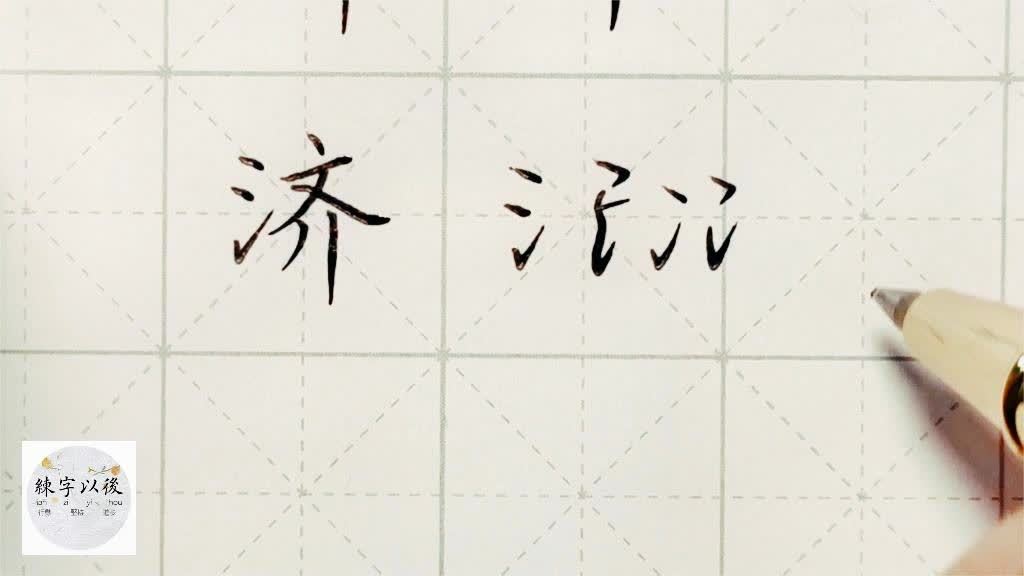 济
練字以後
lian zi yi hou